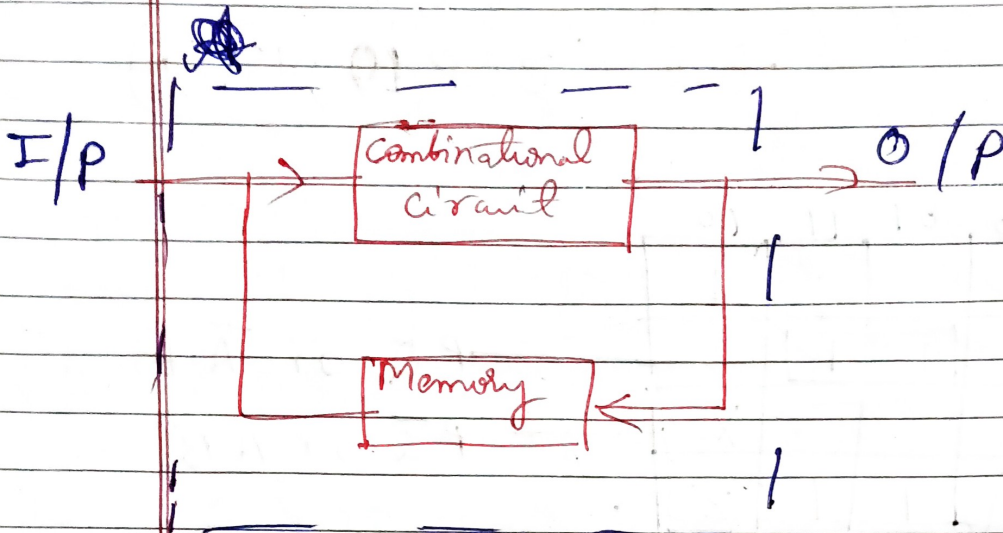 I/P
Combinational
circuit
O/P
Memory